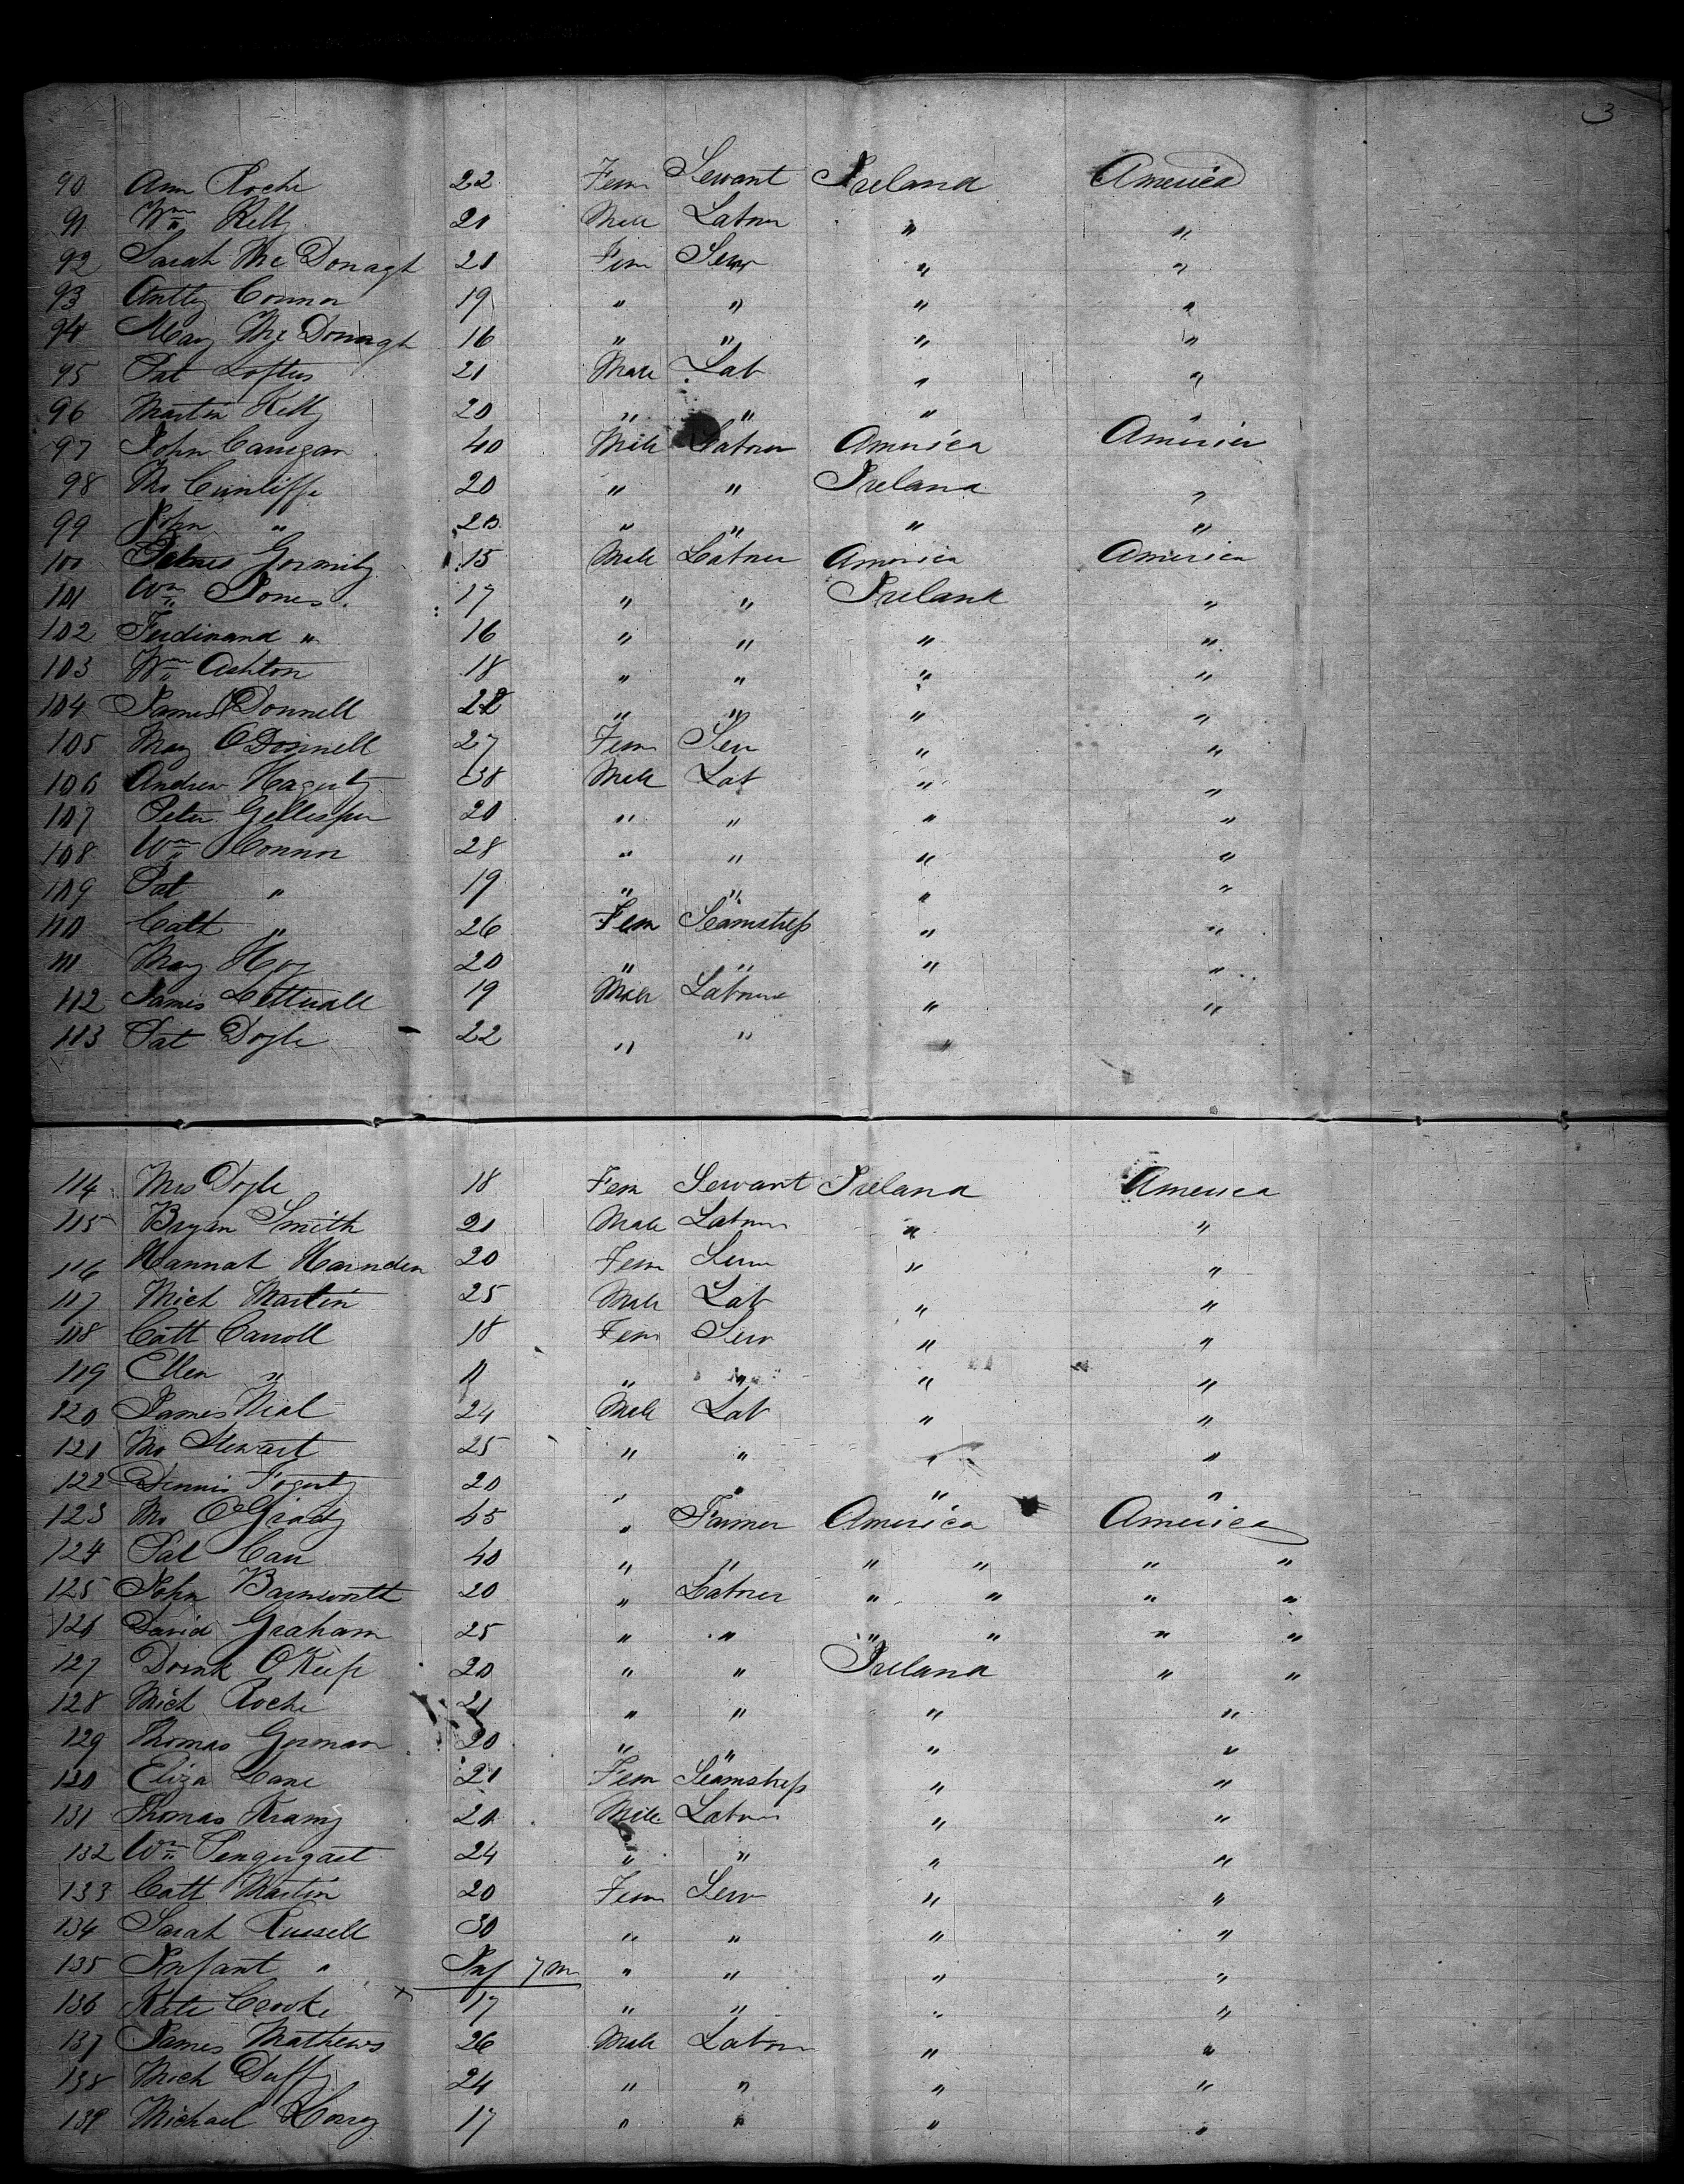 3
90 Ann Roche 22 Fem Servant Ireland America
91 Wm Kelly 20 Male Labour " "
92 Sarah Mc Donagh 21 Fem Serv " "
93 Connor 19 " " " "
94 Mary Mc Donagh 16 " " " "
95 Pat Loftus 21 Male Lab " "
96 Martin Kelly 20 " " " "
97 John 40 Male Labourer America America
98 Cunliffe 20 " " Ireland "
99 John " " " " "
100 15 Male Labourer America America
101 Wm Jones 17 " " Ireland "
102 Ferdinand " 16 " " " "
103 Wm Ashton 18 " " " "
104 James O'Donnell " " " "
105 Mary O'Donnell 27 Fem Serv " "
106 Andrew Hagerty 38 Male Lab " "
107 Peter Gellespie 20 " " " "
108 Wm Connor 28 " " " "
109 Pat " 19 " " " "
110 Cath " 26 Fem Seamstress " "
111 Mary 20 " " " "
112 James 19 Male Labourer " "
113 Pat Doyle 22 " " " "
114 Mrs Doyle 18 Fem Servant Ireland America
115 Bryan Smith 21 Male Labour " "
116 Hannah Harnden 20 Fem Serv " "
117 Mich Martin 25 Male Lab " "
118 Cath Carroll 18 Fem Serv " "
119 Ellen " 11 " " " "
120 James Neal 24 Male Lab " "
121 Stewart 25 " " " "
122 Dennis Fogerty 20 " " " "
123 O'Grady 45 " Farmer America America
124 Pat Carr 40 " " " " " "
125 John Barnworth 20 " Labourer " " " "
126 David Graham 25 " " " " " "
127 O'Keefe 20 " " Ireland " "
128 Mich Roche 21 " " " "
129 Thomas Gorman 20 " " " "
130 Eliza Lane 21 Fem Seamstress " "
131 Thomas 20 Male Labour " "
132 Wm 24 " " " "
133 Cath Martin 20 Fem Serv " "
134 Sarah Russell 30 " " " "
135 Infant " Inf 7 m " " " "
136 Kate Crooke 17 " " " "
137 James Mathews 26 Male Labour " "
138 Mich Duffy 24 " " " "
139 Michael 17 " " " "